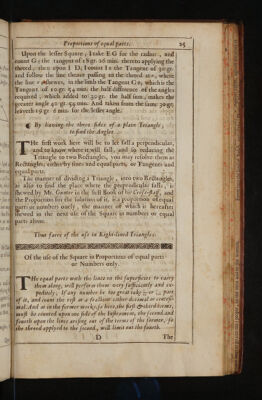 Proportions of equal parts. 25
Upon the lesser Square, I take EG for the radius, and
count G c the tangent of 18 gr. 26 min. thereto applying the
thered, then upon I D, I count I z the Tangent of 30 gr.
and follow the line thence passing to the thered at n, where
the line n o shewes, in the limb the Tangent G o, which is the
Tangent of 10 gr. 54 min: the half difference of the angles
required, which added to 30 gr. the half sum, makes the
greater angle 40 gr. 54 min: And taken from the same 30 gr.
leaveth 19 gr. 6 min. for the lesser angle.
By having the three sides of a plain Triangle,
to find the Angles.
THe first work here will be to let fall a perpendicular,
and to know where it will fall, and so reducing the
Triangle to two Rectangles, you may resolve them as
Rectangles, either by sines and equal parts, or Tangents and
equal parts.
The manner of dividing a Triangle, into two Rectangles,
as also to find the place where the perpendicular falls, is
shewed by Mr. Gunter in the first Book of his Cross-staff, and
the Proportion for the solution of it, is a proportion of equal
parts or numbers onely, the manner of which is hereafter
shewed in the next use of the Square in numbers or equal
parts alone.
Thus farre of the use in Right-lined Triangles.
Of the use of the Square in Proportions of equal parts
or Numbers only.
THe equal parts with the lines to the superficies to carry
them along, will perform them very sufficiently and ex-
peditely, If any number be too great take or part
of it, and count the rest as a fraction either decimal or centesi-
mal. And as in the former works, so here, the first & third terms,
must be counted upon one side of the Instrument, the second and
fourth upon the lines arising out of the terms of the former, so
the thered applyed to the second, will limit out the fourth.
D The